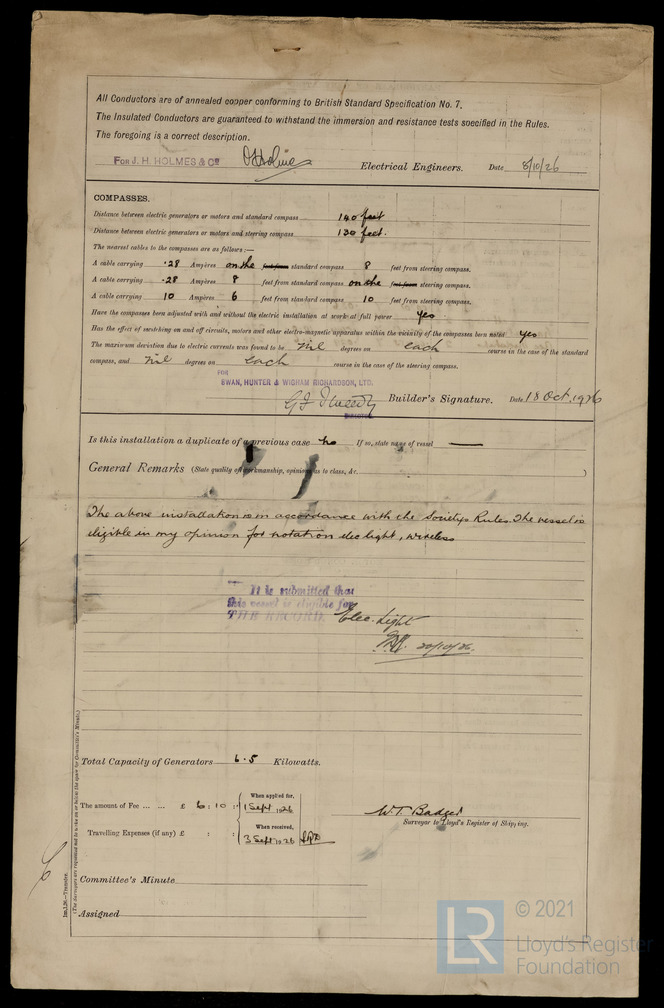 All Conductors are of annealed copper conforming to British Standard Specification No. 7.
The Insulated Conductors are guaranteed to withstand the immersion and resistance tests specified in the Rules.
The foregoing is a correct description.
FOR J. H. HOLMES & Co Electrical Engineers. Date 8/10/26
COMPASSES.
Distance between electric generators or motors and standard compass 140 feet
Distance between electric generators or motors and steering compass 130 feet.
The nearest cables to the compasses are as follows:—
A cable carrying .28 Ampères on the feet from standard compass 8 feet from steering compass.
A cable carrying .28 Ampères 8 feet from standard compass on the feet from steering compass.
A cable carrying 10 Ampères 6 feet from standard compass 10 feet from steering compass.
Have the compasses been adjusted with and without the electric installation at work at full power yes
Has the effect of switching on and off circuits, motors and other electro-magnetic apparatus within the vicinity of the compasses been noted yes
The maximum deviation due to electric currents was found to be nil degrees on each course in the case of the standard
compass, and nil degrees on each course in the case of the steering compass.
FOR
SWAN, HUNTER & WIGHAM RICHARDSON, LTD.
Builder's Signature. Date 18 Oct. 1926
Is this installation a duplicate of a previous case no If so, state name of vessel —
General Remarks (State quality of workmanship, opinions as to class, &c. )
The above installation is in accordance with the Society's Rules. The vessel is
eligible in my opinion for notation elec light, wireless
It is submitted that
this vessel is eligible for
THE RECORD. Elec. Light
20/10/26.
Total Capacity of Generators 6.5 Kilowatts.
The amount of Fee ... ... £ 6 : 10 : When applied for, 1 Sept 1926
Travelling Expenses (if any) £ : : When received, 3 Sept 1926
W.T. Badger
Surveyor to Lloyd's Register of Shipping.
Committee's Minute
Assigned
Im.1.26.—Transfer.
(The Surveyors are requested not to write on or below the space for Committee's Minute.)
LR © 2021
Lloyd's Register
Foundation